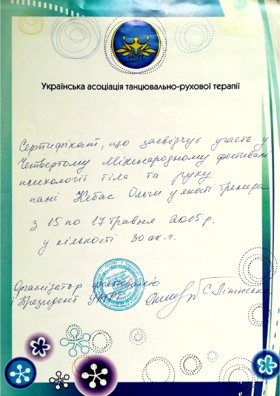 Українська асоціація танцювально-рухової терапії
Сертифікат, що засвідчує участь у
Четвертому Міжнародному фестивалі
психології тіла та руху
пані Кебас Ольги у якості тренера
з 15 по 17 травня 2015 р.
у кількості 30 ак. г.
Організатор фестивалю
і Президент